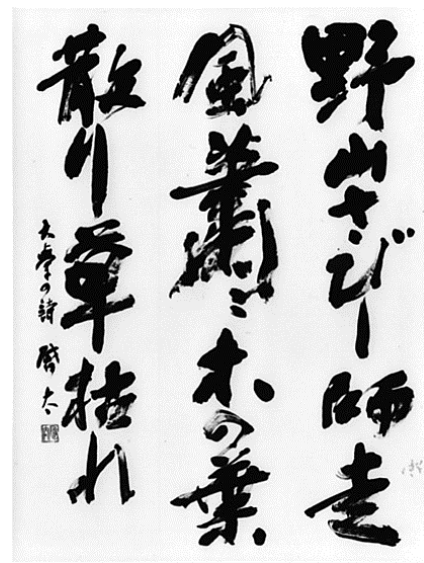 野山さびし師走
風蕭々木の葉
散り草枯れ
大拳の詩 啓太